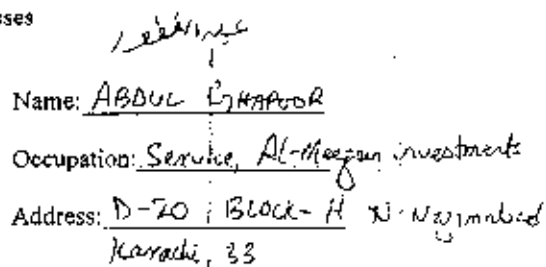 sses
عبدالغفور
Name: ABDUL GHAFOOR
Occupation: Service, Al-Meezan investments
Address: D-20, BLOCK-H N. Nazimabad
Karachi, 33